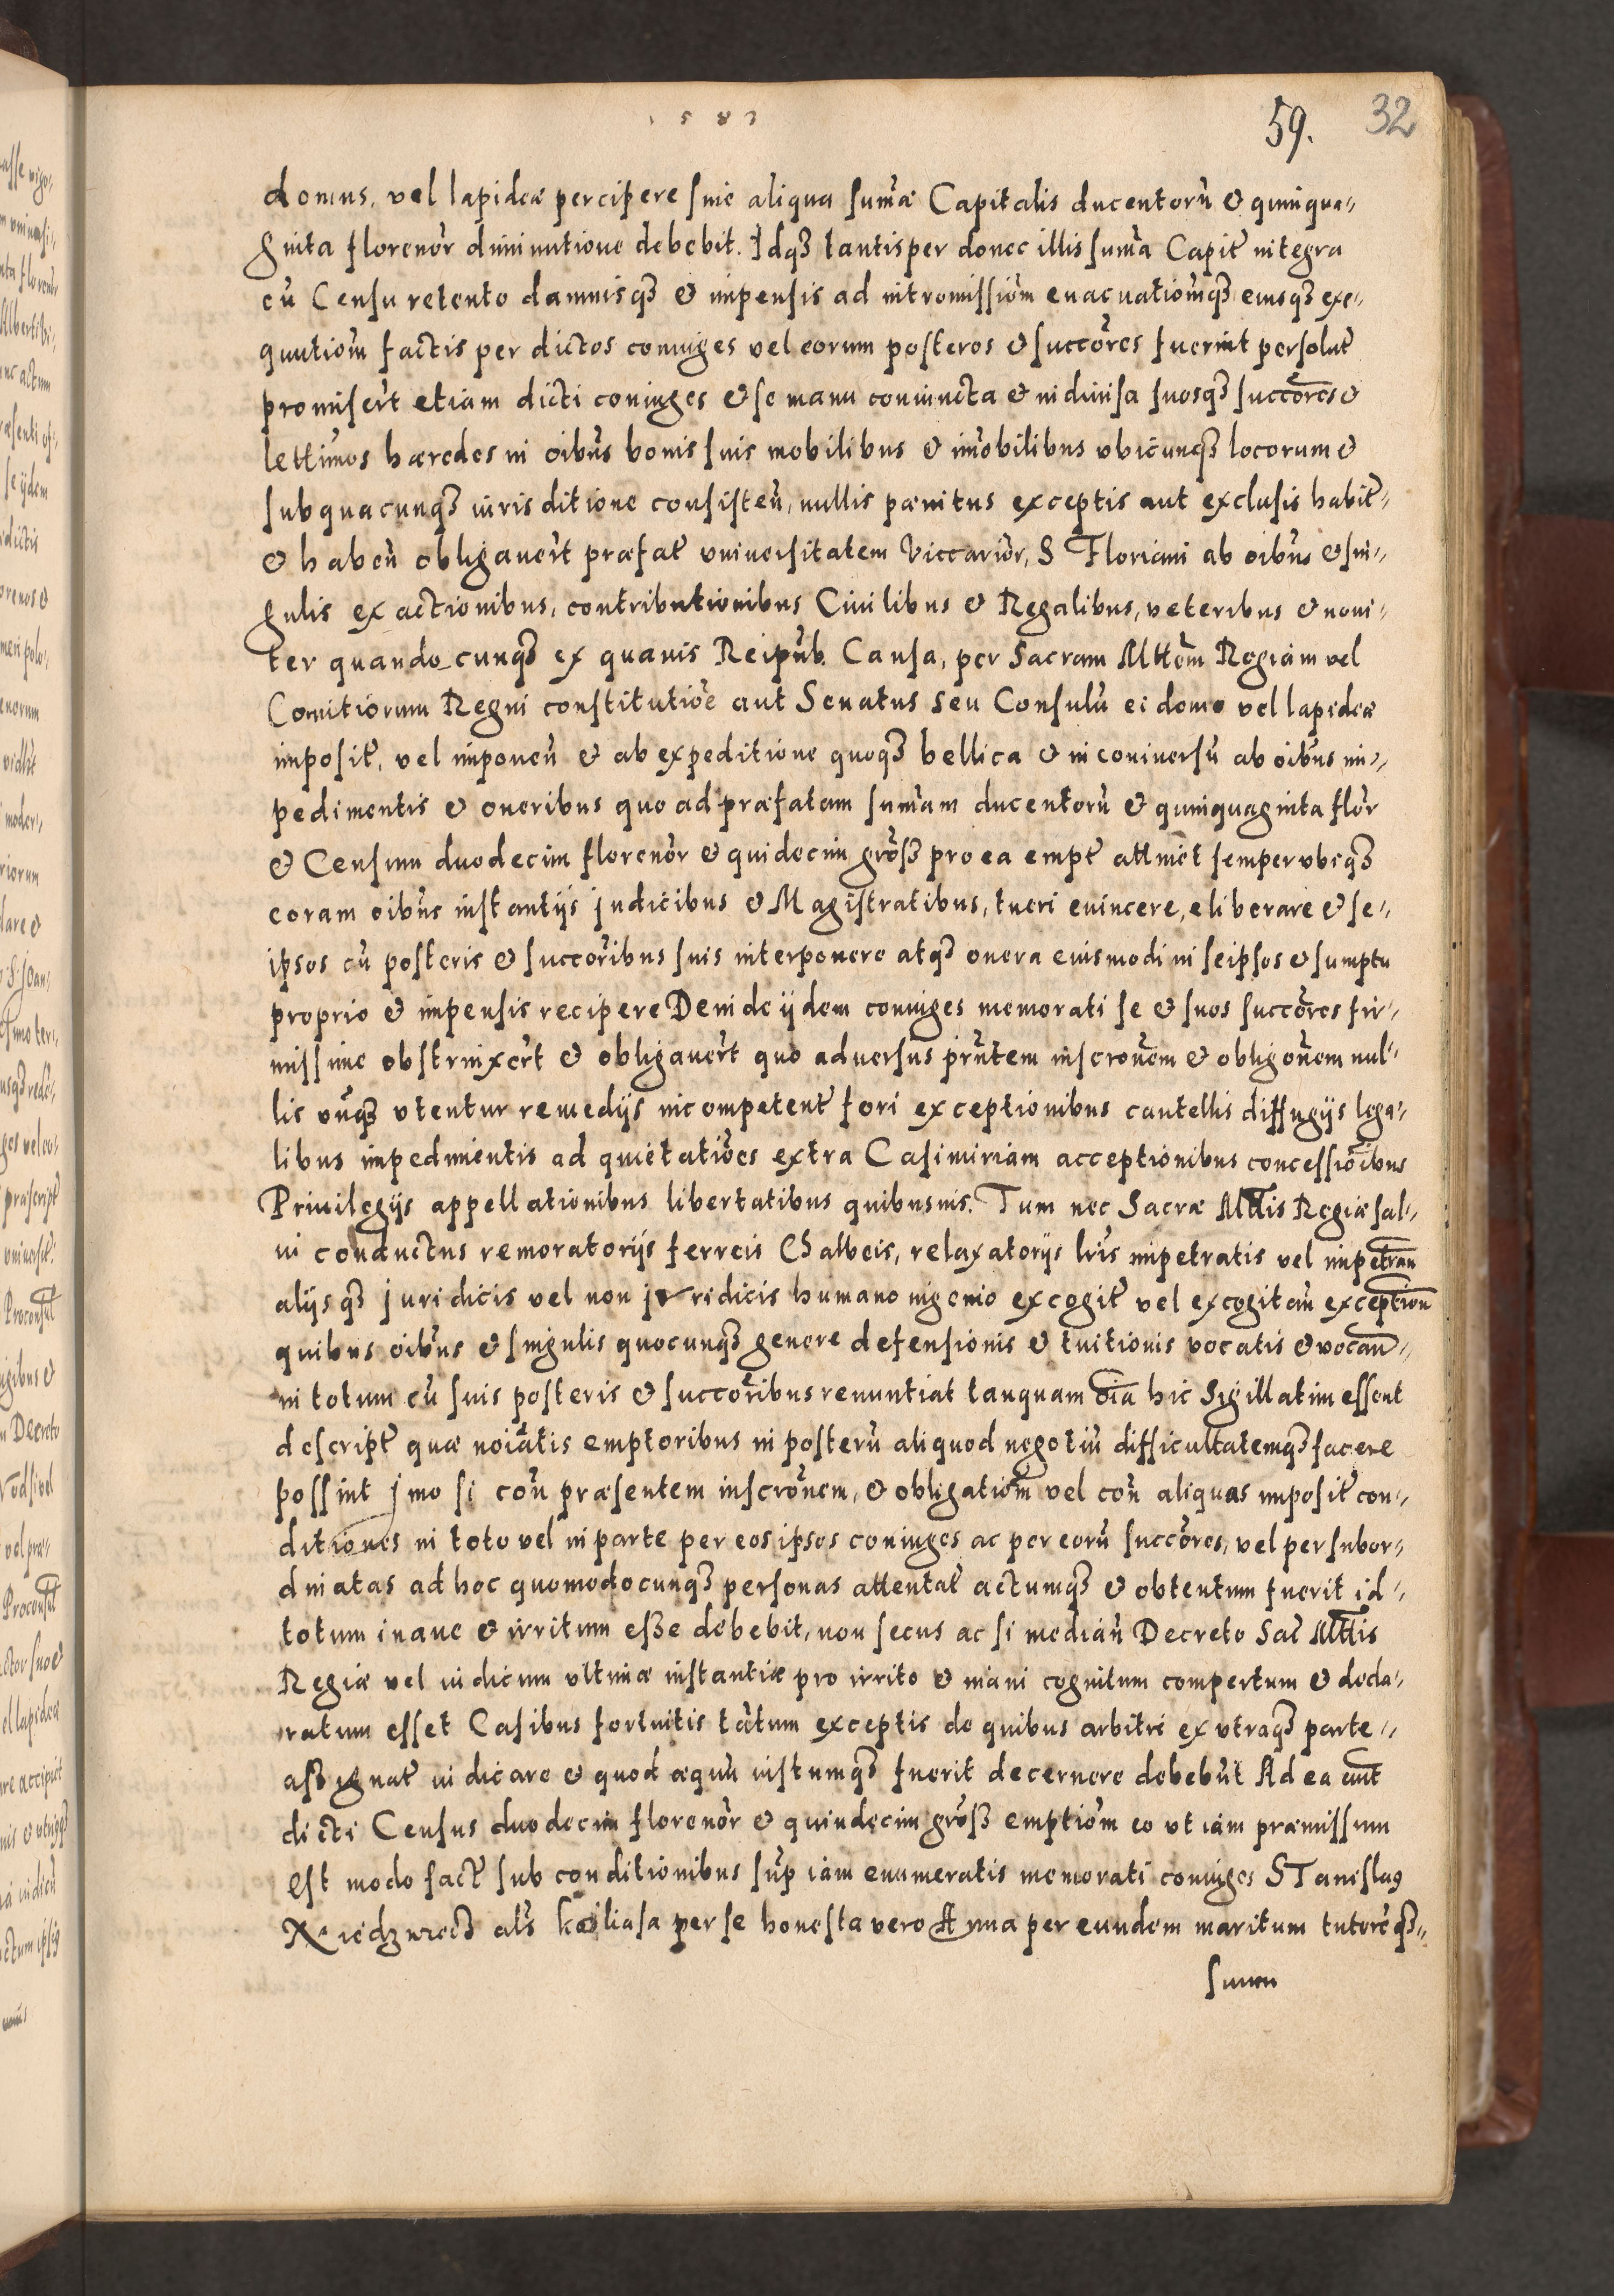 1583
59. 32
domus, vel lapideæ percipere sine aliqua sum̃æ Capitalis ducentorũ & quinqua-
ginta florenor̃ diminutione debebit. Idqȝ tantisper donec illis sum̃a Capit̃ integra
cũ Censu retento damnisqȝ & impensis ad intromissiõm euacuatiom̃qȝ eiusqȝ exe-
quutiom̃ factis per dictos coniuges vel eorum posteros & succõres fuerint persolut̃
promiser̃t etiam dicti coniuges & se manu coniuncta & indiuisa suosqȝ succõres &
lettimos hæredes in oib̃us bonis suis mobilibus & im̃obilibus vbicunqȝ locorum &
sub quacunqȝ iurisditione consisteñ, nullis pænitus exceptis aut exclusis habit̃-
& habeñ obligauer̃t præfat̃ vniuersitatem Viccarior̃, S Floriani ab oib̃us & sin-
gulis exactionibus, contributionibus Ciuilibus & Regalibus, veteribus & noui-
ter quandocunqȝ ex quauis Reipub̃. Causa, per Sacram Mttẽm Regiam vel
Comitiorum Regni constitutiõe aut Senatus seu Consulũ ei domo vel lapideæ
imposit̃, vel imponeñ & ab expeditione quoqȝ bellica & in coniuersũ ab oib̃us im-
pedimentis & oneribus quo ad præfatam sum̃am ducentorũ & quinquaginta flor̃
& Censum duodecim florenor̃ & quidecim gros̃ß pro ea empt̃ attinẽt semper vbiqȝ
coram oib̃us instantijs judicibus & Magistratibus, tueri euincere, eliberare & se-
ipsos cũ posteris & succõribus suis interponere atqȝ onera eiusmodi in seipsos & sumptu
proprio & impensis recipere Deinde ijdem coniuges memorati se & suos succõres fir-
missime obstrinxer̃t & obligauer̃t quo aduersus prñtem inscrõnem & obligõnem nul-
lis vñqȝ vtentur remedijs incompetent̃ fori exceptionibus cautellis diffugijs lega-
libus impedimentis ad quietatiões extra Casimiriam acceptionibus concessiõibus
Priuilegijs appellationibus libertatibus quibusuis. Tum nec Sacræ Mttis Regiæ sal-
ui conductus remoratorijs ferreis Chalbeis, relaxatorijs lrĩs impetratis vel impetrañ
alijsqȝ juridicis vel non juridicis humano ingenio excogit̃ vel excogitañ exception̄
quibus oib̃us & singulis quocunqȝ genere defensionis & tuitionis vocatis & vocañ-
in totum cũ suis posteris & succõribus renuntiat tanquam oĩa hic Sigillatim essent
descript̃ quæ noiãtis emptoribus in posterũ aliquod negotiũ difficultatemqȝ facere
possint jmo si coñ præsentem inscrõnem, & obligatiom̃ vel coñ aliquas imposit̃ con-
ditiones in toto vel in parte per eos ipsos coniuges ac per eorũ succõres, vel per subor-
dinatas ad hoc quomodocunqȝ personas attentat̃ actumqȝ & obtentum fuerit id-
totum inane & irritum eße debebit, non secus ac si mediañ Decreto Sac̃ Mttis
Regiæ vel iudicum vltimæ instantiæ pro irrito & inani cognitum compertum & decla-
ratum esset Casibus fortuitis tãtum exceptis de quibus arbitri ex vtraqȝ parte-
aßignat̃ iudicare & quod æquũ iustumqȝ fuerit decernere debebũt Ad ea aũt
dicti Census duodecim florenor̃ & quindecim gros̃ß emptiom̃ eo vt iam præmissum
est modo fact̃ sub conditionibus sup̃ iam enumeratis memorati coniuges STanislaus
als̃ per se honesta vero Anna per eundem maritum tutorẽqȝ-
suum